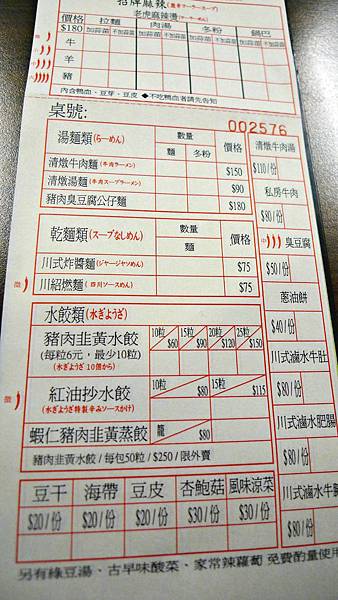 招牌麻辣
老虎麻辣燙
價格 拉麵 肉湯 冬粉 鍋巴
$180 加蒜苗 不加蒜苗 加蒜苗 不加蒜苗 加蒜苗 不加蒜苗 加蒜苗 不加蒜苗
牛
羊
豬
內含鴨血、豆芽、豆皮 ◆不吃鴨血者請先告知
桌號:
002576
湯麵類(らーめん) 數量 價格
麵 冬粉
清燉牛肉麵(牛肉ラーメン) $150
清燉湯麵(牛肉スープラーメン) $90
豬肉臭豆腐公仔麵 $180
乾麵類(スープなしめん) 數量 價格
麵
川式炸醬麵(ジャージャソめん) $75
微 川紹燃麵(四川ソースめん) $75
水餃類(水ぎようざ)
豬肉韭黃水餃 10粒 $60 15粒 $90 20粒 $120 25粒 $150
(每粒6元，最少10粒)
(水ぎようざ 10個から)
微 紅油抄水餃 10粒 $80 15粒 $115
(水ぎようざ特製辛みソースかけ)
蝦仁豬肉韭黃蒸餃 籠 $80
豬肉韭黃水餃 / 每包50粒 / $250 / 限外賣
豆干 海帶 豆皮 杏鮑菇 風味涼菜
$20/份 $20/份 $20/份 $30/份 $30/份
清燉牛肉湯
$110/份
私房牛肉
$80/份
中 臭豆腐
$50/份
蔥油餅
$40/份
川式滷水牛肚
$80/份
川式滷水肥腸
$80/份
川式滷水牛
$80/份
另有綠豆湯、古早味酸菜、家常辣蘿蔔 免費酌量使用